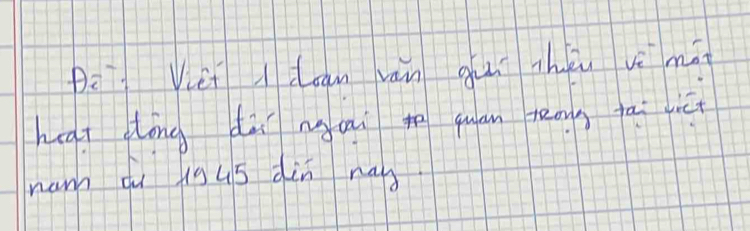 Đề: Viết 1 đoạn văn giới thiệu về một
hoạt động đối ngoại quan trọng tại việt
nam từ 1945 đến nay.